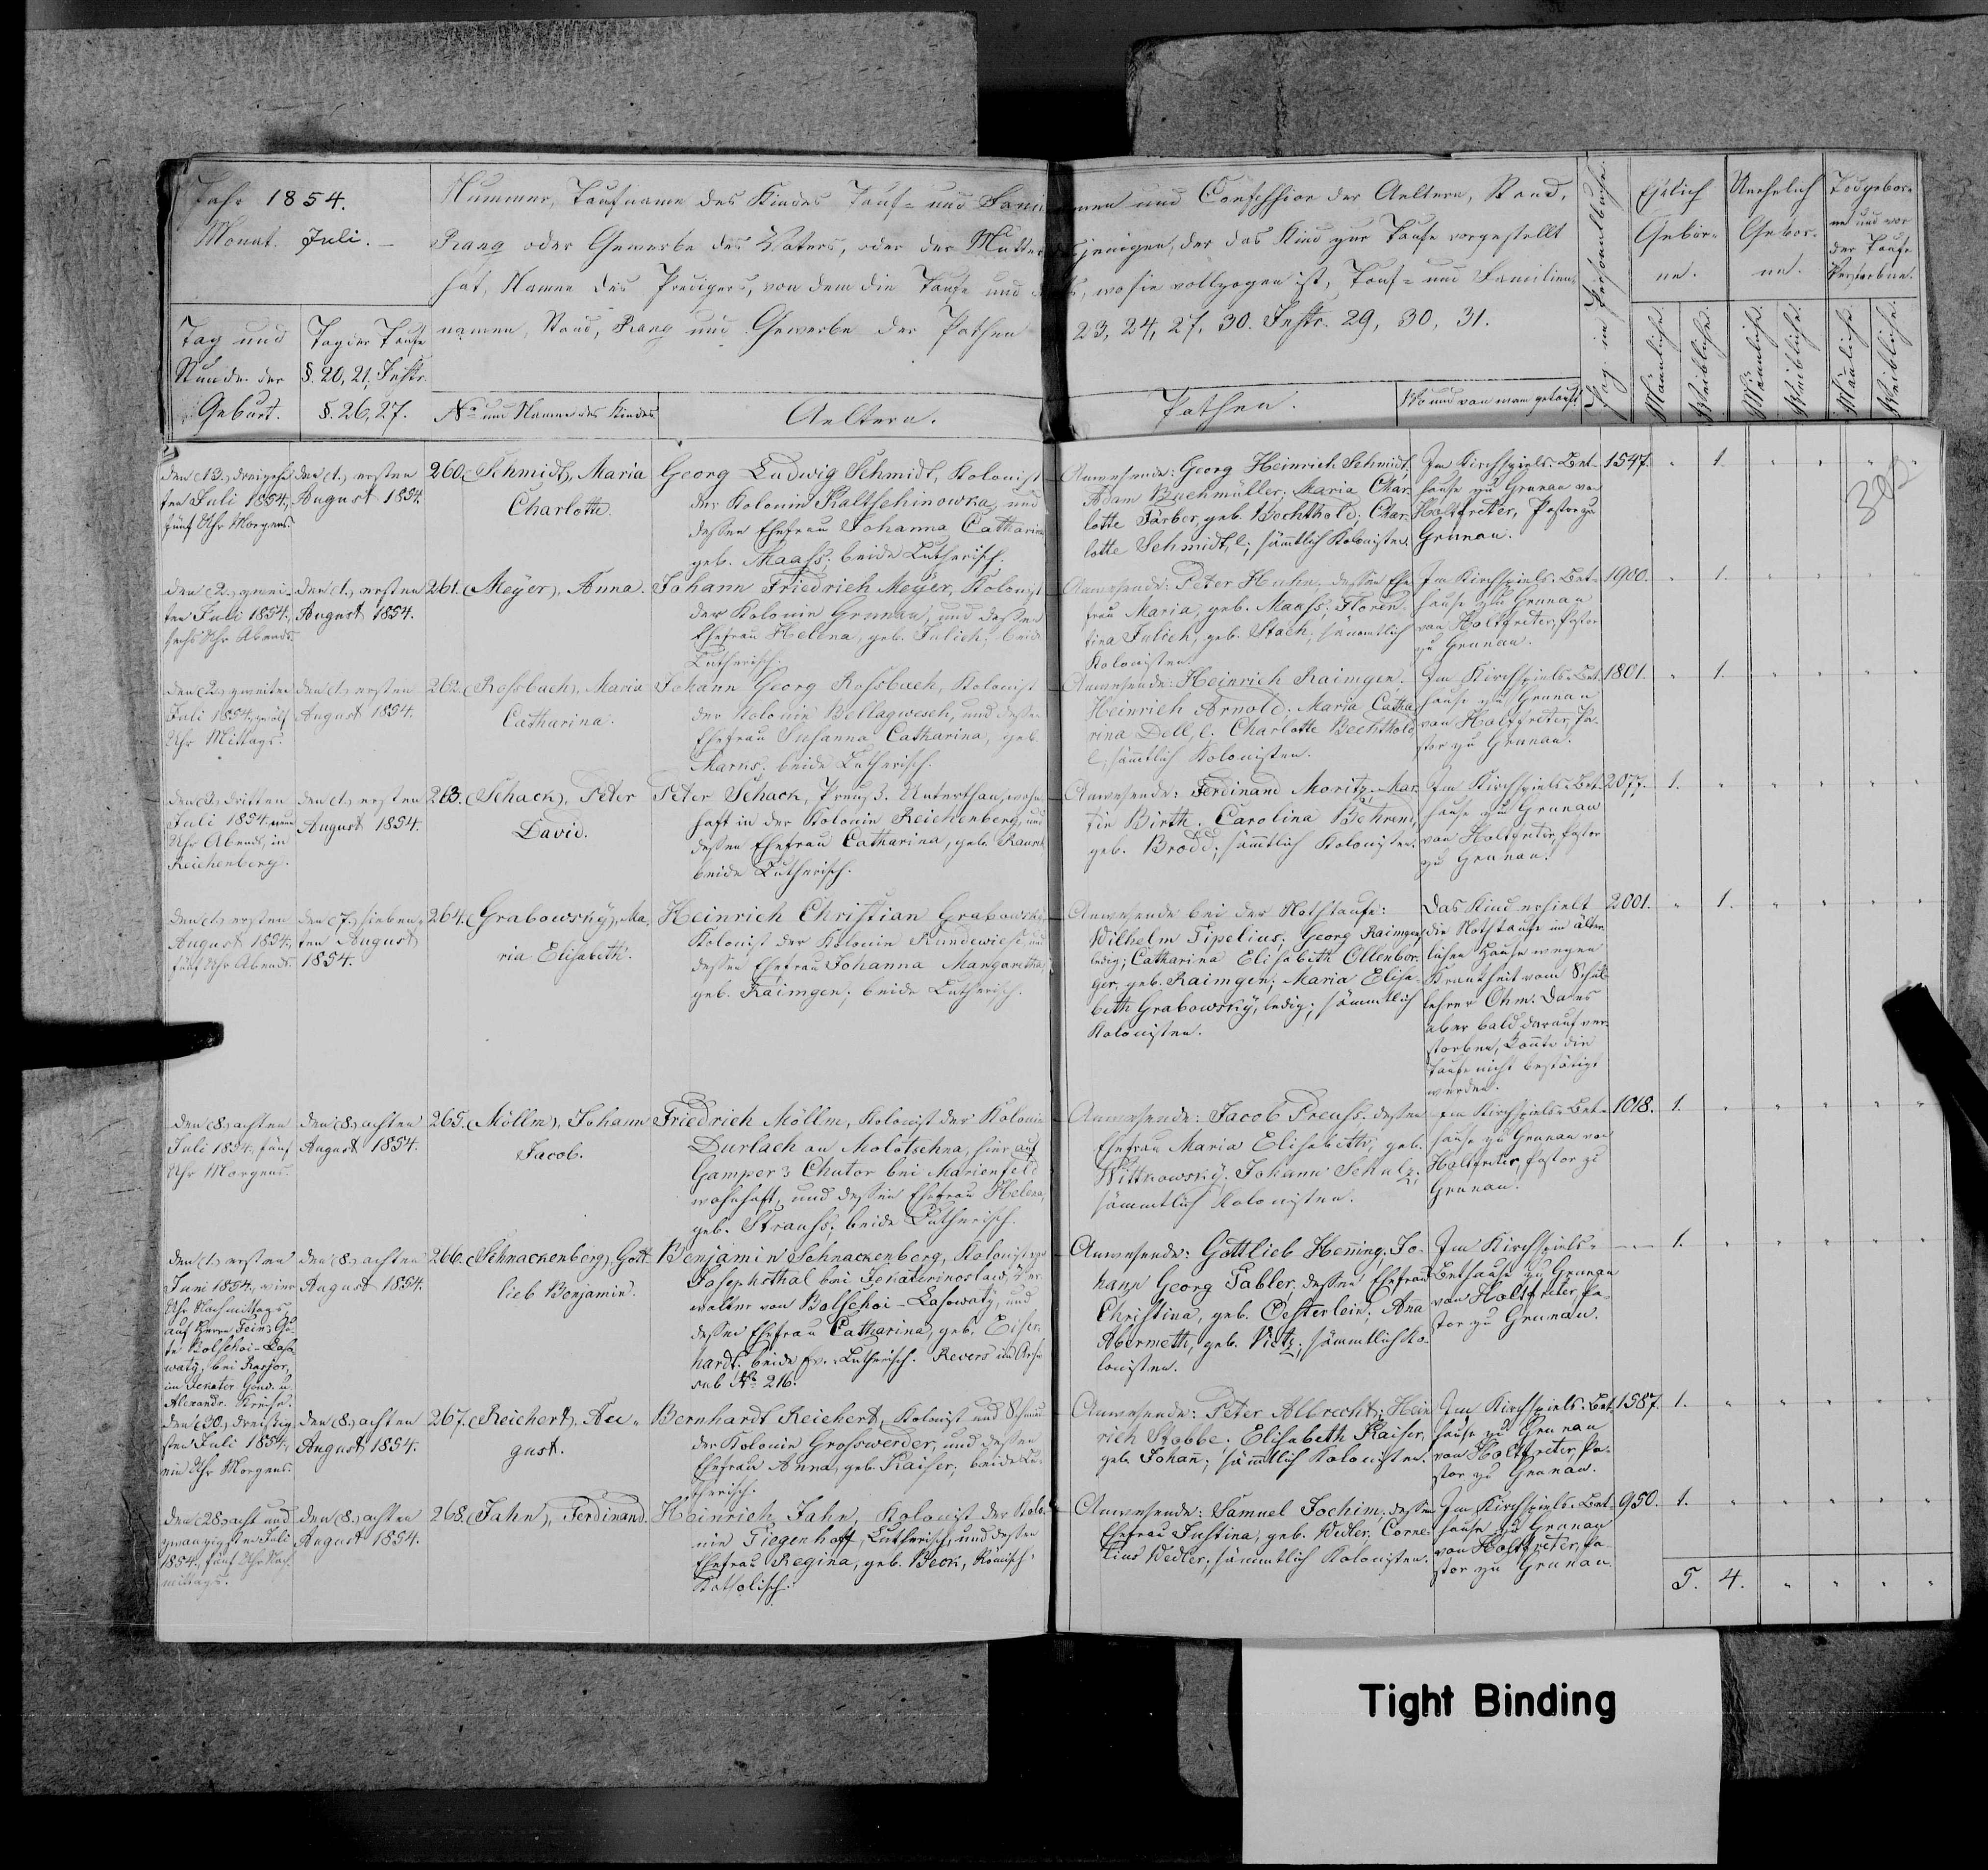 Jahr 1854.
Monat. Juli. —
Nummer, Taufname des Kindes Tauf- und Fami
Rang oder Gewerbe des Vaters, oder der Mutter
hat, Namen des Predigers, von dem die Taufe und
namen, Stand, Rang und Gewerbe der Pathen
Tag und
Stunde der
Geburt.
Tag der Taufe
§. 20, 21, Instr.
§. 26, 27.
No und Name des Kindes
Aeltern.
men und Confession der Aeltern, Stand,
jenigen, der das Kind zur Taufe vorgestellt
wo sie vollzogen ist, Tauf- und Familien-
23, 24, 27, 30. Instr. 29, 30, 31.
Pathen.
Wo und von wem getauft
Pag. im Personalbuche.
Ehelich
Gebor-
ne.
Unehelich
Gebor-
ne.
Todgebor-
ne und vor
der Taufe
Verstorbene.
Männliche.
Weibliche.
Männliche.
Weibliche.
Männliche.
Weibliche.
den (13.) dreizehn-
ten Juli 1854.,
fünf Uhr Morgens.
den (1.) ersten
August 1854.
260. (Schmidt), Maria
Charlotte.
Georg Ludwig Schmidt, Kolonist
der Kolonie Kaltschinowka, und
dessen Ehefrau Johanna Catharina
geb. Maass; beide Lutherisch.
Anwesende: Georg Heinrich Schmidt,
Adam Buchmüller; Maria Char-
lotte Färber, geb. Bechthold; Char-
lotte Schmidt, l.; sämtlich Kolonisten.
Im Kirchspiels-Bet-
hause zu Grunau von
Holtfreter, Pastor zu
Grunau.
1547. " 1. " " " "
392
den (2.) zwei-
ten Juli 1854.,
sechs Uhr Abends.
den (1.) ersten
August 1854.
261. (Meyer), Anna.
Johann Friedrich Meyer, Kolonist
der Kolonie Grunau, und dessen
Ehefrau Helena, geb. Julich; beide
Lutherisch.
Anwesende: Peter Huhn, dessen Ehe-
frau Maria, geb. Maass; Floren-
tina Julich, geb. Stach, sämmtlich
Kolonisten.
Im Kirchspiels-Bet-
hause zu Grunau
von Holtfreter, Pastor
zu Grunau.
1900. " 1. " " " "
den (2.) zweiten
Juli 1854, zwölf
Uhr Mittags.
den (1.) ersten
August 1854.
262. (Rossbach), Maria
Catharina.
Johann Georg Rossbach, Kolonist
der Kolonie Bellagwesch, und dessen
Ehefrau Susanna Catharina, geb.
Marks; beide Lutherisch.
Anwesende: Heinrich Raimgen.
Heinrich Arnold. Maria Catha-
rina Dell, l. Charlotte Bechthold
l., sämtlich Kolonisten.
Im Kirchspiels-Bet-
hause zu Grunau
von Holtfreter, Pa-
stor zu Grunau.
1801. " 1. " " " "
den (3.) dritten
Juli 1854. neun
Uhr Abends, in
Reichenberg.
den (1.) ersten
August 1854.
263. (Schack), Peter
David.
Peter Schack, Preuß. Unterthan, wohn-
haft in der Kolonie Reichenberg, und
dessen Ehefrau Catharina, geb.
beide Lutherisch.
Anwesende: Ferdinand Moritz. Mar-
tin Birth. Carolina Behrend,
geb. Brodd; sämtlich Kolonisten.
Im Kirchspiels-Bet-
hause zu Grunau
von Holtfreter, Pastor
zu Grunau.
2077. 1. " " " " "
den (1.) ersten
August 1854.,
fünf Uhr Abends.
den (7.) sieben-
ten August
1854.
264. (Grabowsky), Ma-
ria Elisabeth.
Heinrich Christian Grabowsky
Kolonist der Kolonie Rundewiese, und
dessen Ehefrau Johanna Margaretha
geb. Raimgen; beide Lutherisch.
Anwesende bei der Nothtaufe:
Wilhelm Tipelius; Georg Raimgen,
ledig; Catharina Elisabeth Ollenbor-
ger, geb. Raimgen; Maria Elisa-
beth Grabowsky, ledig; sämmtlich
Kolonisten.
Das Kind erhielt
die Nothtaufe im älter-
lichen Hause wegen
Krankheit vom Schul-
lehrer Ohm. Da es
aber bald darauf ver-
storben, konnte die
Taufe nicht bestätigt
werden.
2001. " 1. " " " "
den (8.) achten
Juli 1854., fünf
Uhr Morgens.
den (8.) achten
August 1854.
265. (Möllm), Johann
Jacob.
Friedrich Möllm, Kolonist der Kolonie
Durlach an Molotschna, hier auf
Gamper's Chutor bei Marienfeld
wohnhaft, und dessen Ehefrau Helena,
geb. Strauss; beide Lutherisch.
Anwesende: Jacob Preuss. dessen
Ehefrau Maria Elisabeth, geb.
Wittkowsky. Johann Schulz;
sämmtlich Kolonisten.
Im Kirchspiels-Bet-
hause zu Grunau von
Holtfreter, Pastor zu
Grunau.
1018. 1. " " " " "
den (1.) ersten
Juni 1854., vier
Uhr Nachmittags,
auf Herrn Fein's Gu-
te Bolschoi-Lasa-
waty, bei Rasgor,
im Jekater. Gouv. u.
Alexandr. Kreise.
den (8.) achten
August 1854.
266. (Schnackenberg), Gott-
lieb Benjamin.
Benjamin Schnackenberg, Kolonist zu
Josephsthal bei Jekaterinoslaw, Ver-
walter von Bolschoi-Lasowaty, und
dessen Ehefrau Catharina, geb. Eiser-
hardt. beide ev. Lutherisch. Revers im Archiv
sub No 216.
Anwesende: Gottlieb Hening; Jo-
hann Georg Tabler, dessen Ehefrau
Christina, geb. Oesterlein; Anna
Abermeth, geb. Vietz; sämmtlich Ko-
lonisten.
Im Kirchspiels-
Bethause zu Grunau
von Holtfreter, Pa-
stor zu Grunau.
—.— 1. " " " " "
den (30.) dreißig-
sten Juli 1854.,
ein Uhr Morgens.
den (8.) achten
August, 1854.
267. (Reichert), Au-
gust.
Bernhardt Reichert, Kolonist und
der Kolonie Grosswerder, und dessen
Ehefrau Anna, geb. Kaiser; beide Lu-
therisch.
Anwesende: Peter Albrecht; Hein-
rich Stobbe; Elisabeth Kaiser,
geb. Johann; sämtlich Kolonisten.
Im Kirchspiels-Bet-
hause zu Grunau
von Holtfreter, Pa-
stor zu Grunau.
1587. 1. " " " " "
den (28.) acht und
zwanzigsten Juli
1854., fünf Uhr Nach-
mittags.
den (8.) achten
August 1854.
268. (Jahn), Ferdinand.
Heinrich Jahn, Kolonist der Kolo-
nie Tiegenhoff, Lutherisch, und dessen
Ehefrau Regina, geb. Beck, Römisch-
Katholisch.
Anwesende: Samuel Jochim, dessen
Ehefrau Justina, geb. Wedler. Corne-
lius Wedler; sämmtlich Kolonisten.
Im Kirchspiels-Bet-
hause zu Grunau
von Holtfreter, Pa-
stor zu Grunau.
950. 1. " " " " "
5. 4. " " " "
Tight Binding